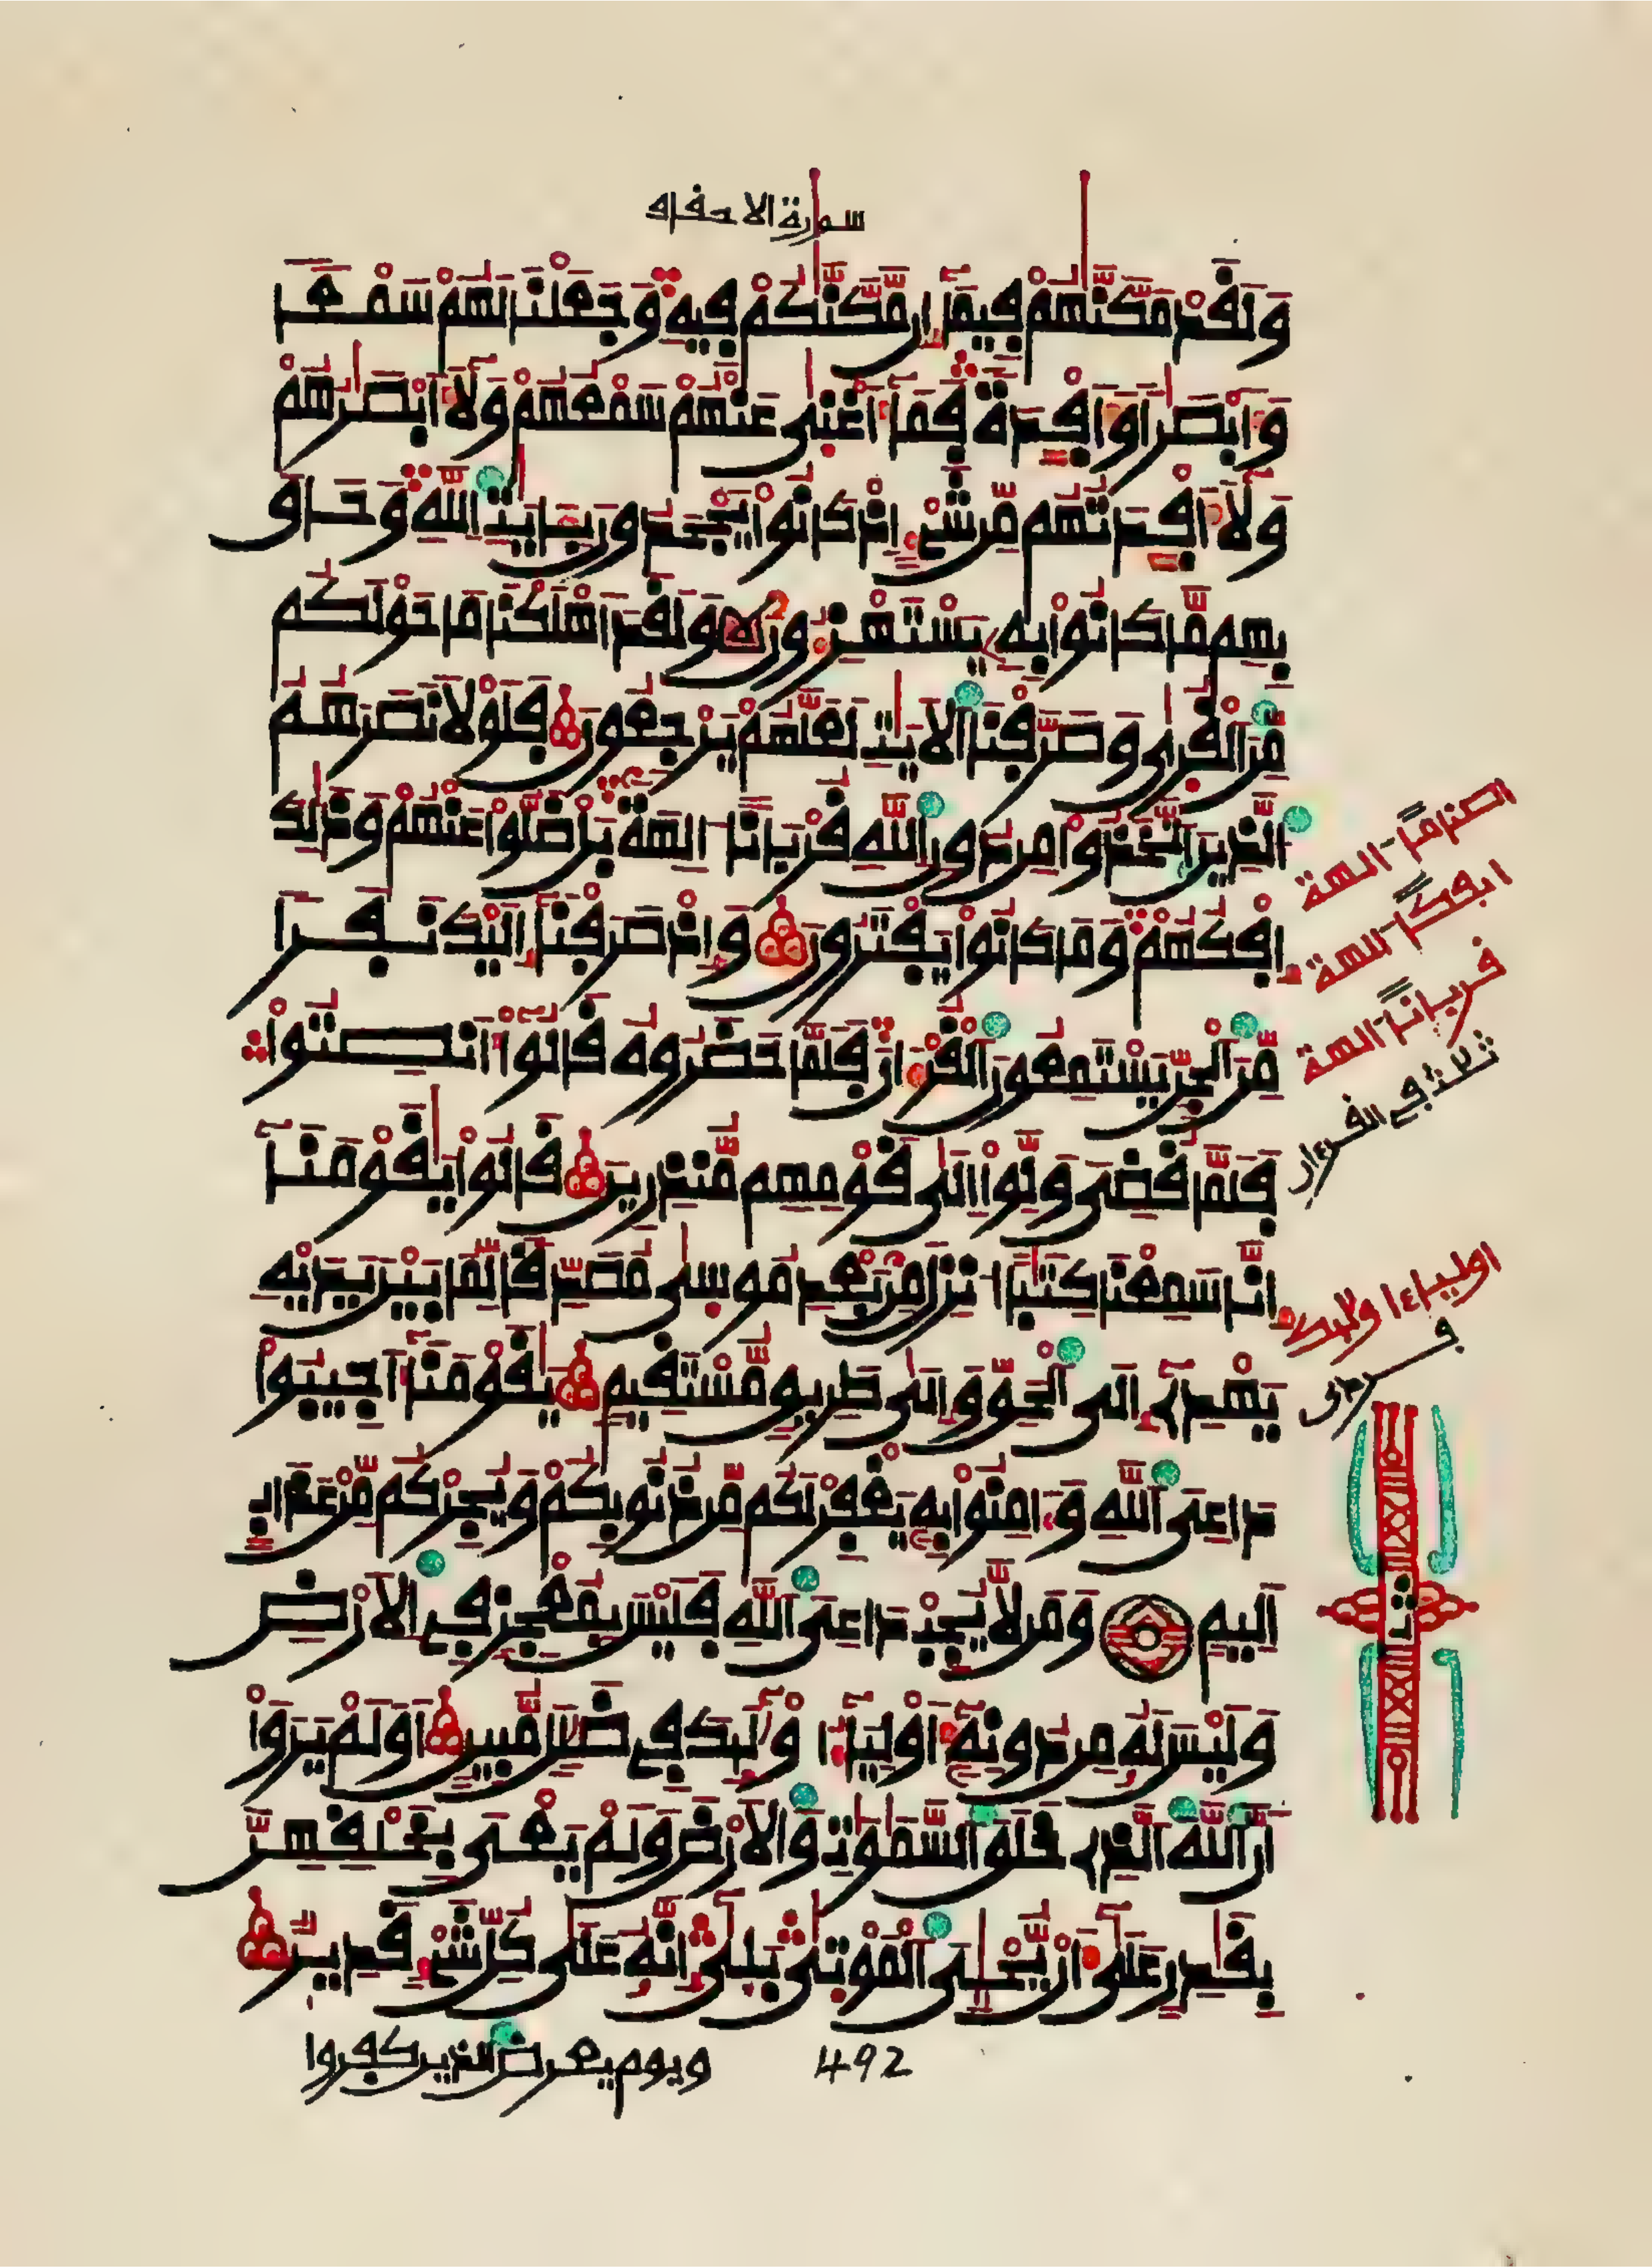 سورة الاحفاف
وَلَقَدْ مَكَّنَّٰهُمْ فِيمَآ إِن مَّكَّنَّٰكُمْ فِيهِ وَجَعَلْنَا لَهُمْ سَمْعًا
وَأَبْصَٰرًا وَأَفْـِٕدَةً فَمَآ أَغْنَىٰ عَنْهُمْ سَمْعُهُمْ وَلَآ أَبْصَٰرُهُمْ
وَلَآ أَفْـِٕدَتُهُم مِّن شَيْءٍ إِذْ كَانُوا۟ يَجْحَدُونَ بِـَٔايَٰتِ ٱللَّهِ وَحَاقَ
بِهِم مَّا كَانُوا۟ بِهِۦ يَسْتَهْزِءُونَ وَلَقَدْ أَهْلَكْنَا مَا حَوْلَكُم
مِّنَ ٱلْقُرَىٰ وَصَرَّفْنَا ٱلْأَيَٰتِ لَعَلَّهُمْ يَرْجِعُونَ فَلَوْلَا نَصَرَهُمُ
ٱلَّذِينَ ٱتَّخَذُوا۟ مِن دُونِ ٱللَّهِ قُرْبَانًا ءَالِهَةً بَلْ ضَلُّوا۟ عَنْهُمْ وَذَٰلِكَ
إِفْكُهُمْ وَمَا كَانُوا۟ يَفْتَرُونَ وَإِذْ صَرَفْنَآ إِلَيْكَ نَفَرًا
مِّنَ ٱلْجِنِّ يَسْتَمِعُونَ ٱلْقُرْءَانَ فَلَمَّا حَضَرُوهُ قَالُوٓا۟ أَنصِتُوا۟
فَلَمَّا قُضِيَ وَلَّوْا۟ إِلَىٰ قَوْمِهِم مُّنذِرِينَ قَالُوا۟ يَٰقَوْمَنَآ
إِنَّا سَمِعْنَا كِتَٰبًا أُنزِلَ مِنۢ بَعْدِ مُوسَىٰ مُصَدِّقًا لِّمَا بَيْنَ يَدَيْهِ
يَهْدِيٓ إِلَى ٱلْحَقِّ وَإِلَىٰ طَرِيقٍ مُّسْتَقِيمٍ يَٰقَوْمَنَآ أَجِيبُوا۟
دَاعِيَ ٱللَّهِ وَءَامِنُوا۟ بِهِۦ يَغْفِرْ لَكُم مِّن ذُنُوبِكُمْ وَيُجِرْكُم مِّنْ عَذَابٍ
أَلِيمٍ وَمَن لَّا يُجِبْ دَاعِيَ ٱللَّهِ فَلَيْسَ بِمُعْجِزٍ فِي ٱلْأَرْضِ
وَلَيْسَ لَهُۥ مِن دُونِهِۦٓ أَوْلِيَآءُ أُو۟لَٰٓئِكَ فِي ضَلَٰلٍ مُّبِينٍ أَوَلَمْ يَرَوْا۟
أَنَّ ٱللَّهَ ٱلَّذِي خَلَقَ ٱلسَّمَٰوَٰتِ وَٱلْأَرْضَ وَلَمْ يَعْيَ بِخَلْقِهِنَّ
بِقَٰدِرٍ عَلَىٰٓ أَن يُحْـِۧيَ ٱلْمَوْتَىٰ بَلَىٰٓ إِنَّهُۥ عَلَىٰ كُلِّ شَيْءٍ قَدِيرٌ
ويوم يعرض الذين كفروا
492
اصناماً الهة
ايفكاً الهة
قرباناً الهة
ثلاث في القرءان
اولياء اولئك
ثمن